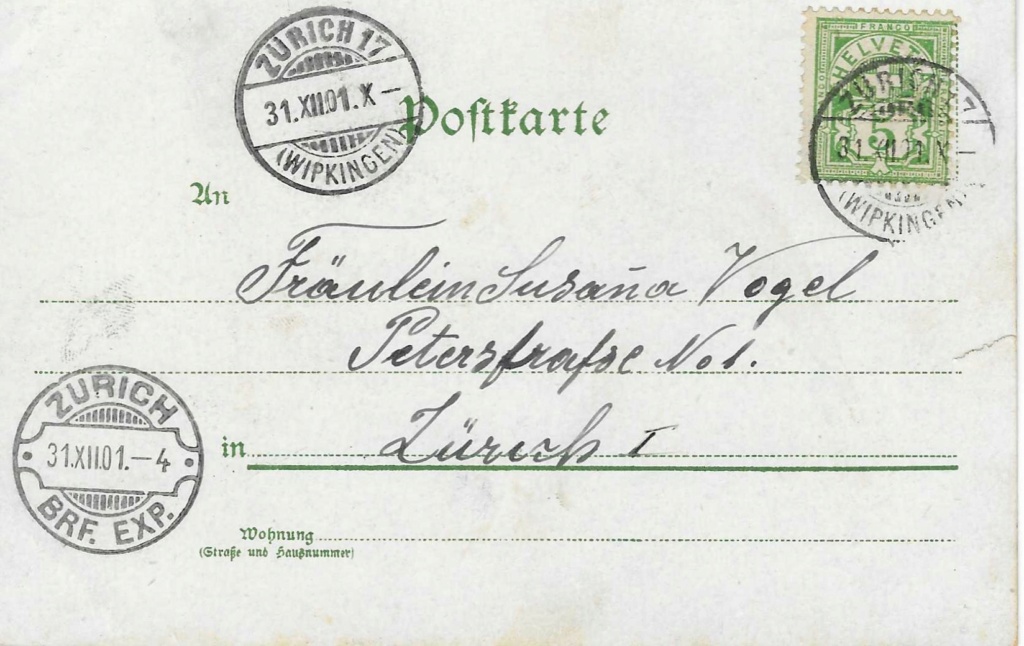 ZÜRICH 17
31.XII.01.X—
(WIPKINGEN)
FRANCO
HELVETIA
5
ZÜRICH 17
31.XII.01.X—
(WIPKINGEN)
Postkarte
An
Fräulein Susan̄a Vogel
Petersstrasse No 1.
in Zürich I
ZÜRICH
31.XII.01.—4
BRF. EXP.
Wohnung
(Straße und Hausnummer)